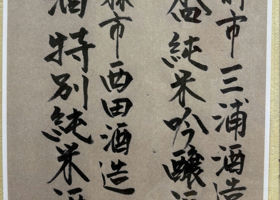 前市 三浦酒造
盃純米吟醸酒
森市 西田酒造
酒特別純米酒